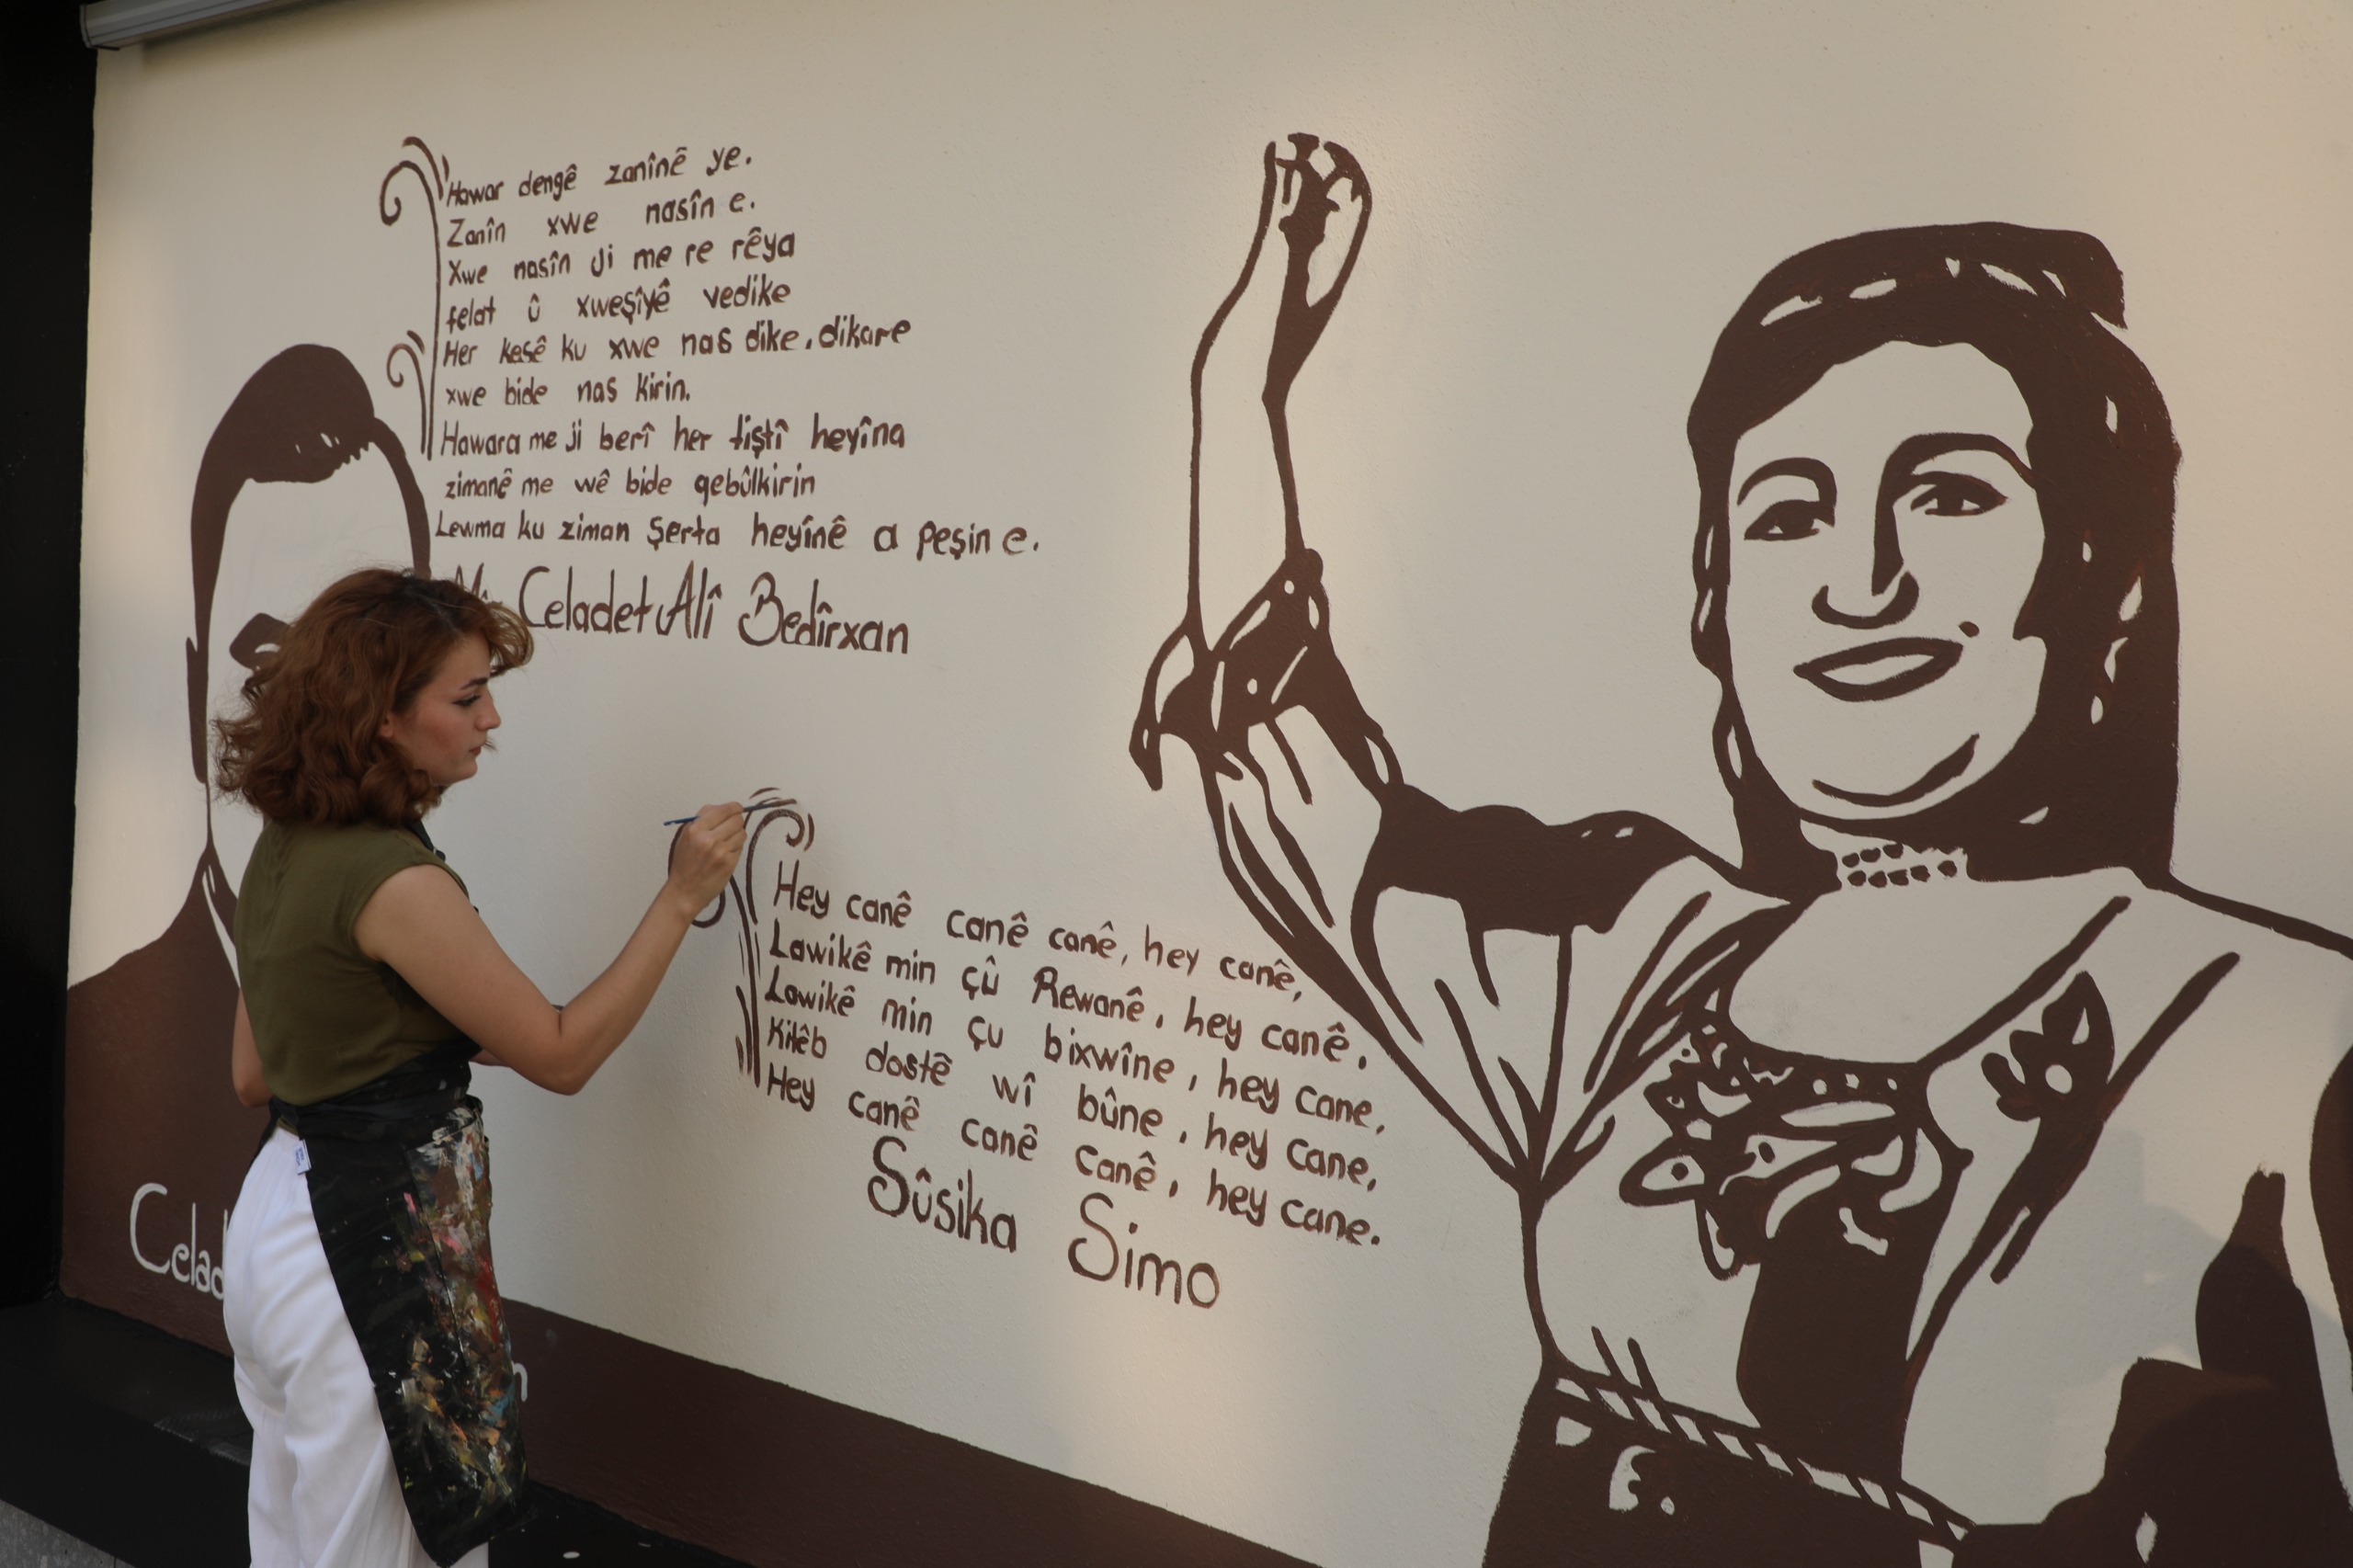 Hawar dengê zanînê ye.
Zanîn xwe nasîn e.
Xwe nasîn ji me re rêya
felat û xweşîyê vedike
Her kesê ku xwe nas dike, dikare
xwe bide nas kirin.
Hawara me ji berî her tiştî heyîna
zimanê me wê bide qebûlkirin
Lewma ku ziman şerta heyînê a peşin e.
Celadet Alî Bedîrxan
Hey canê canê canê, hey canê,
Lawikê min çû Rewanê, hey canê.
Lawikê min çu bixwîne, hey cane,
Kitêb dostê wî bûne, hey cane,
Hey canê canê canê, hey cane.
Sûsika Simo